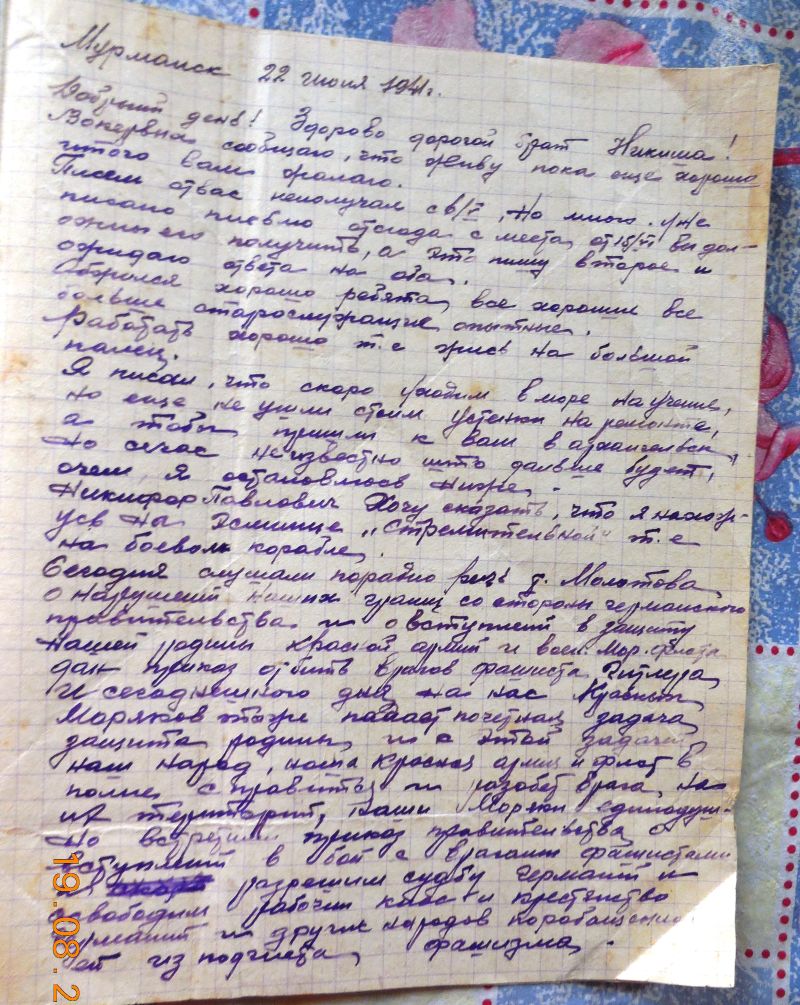 Мурманск 22 июня 1941г.
Добрый день! Здорово дорогой брат Никиша!
Вопервых сообщаю, что живу пока еще хорошо
итого вам желаю.
Писем отвас неполучал с 8/V, Но много уже
писано письмо отсюда с места, от 15/VI вы дол-
жны его получить, а это пишу второе и
ожидаю ответа на оба.
хорошо ребята, все хорошие все
больше старослужащие опытные.
Работать хорошо т.е жись на большой
палец.
Я писал, что скоро уходим в море на учение,
но еще не ушли стоим устенки на ремонте,
а тобы пришли к вам в архангельск,
Но сечас неизвестно што дальше будет,
очем, я остановлюсь ниже.
Никифор Павлович Хочу сказать, что я нахож-
усь на Эсминце „Стремительной" т.е
на боевом корабле.
Сегодня слушали порадио речь т. Молотова,
о нарушений наших границ со стороны германского
правительства и о вступлений в защиту
нашей родины красной армий и воен. мор. флота
дан приказ отбить врагов фашиста Гитлера,
И сегоднешнего дня, на нас Красных
Моряков тоже падает почетная задача,
защита родины, и с этой задачей
наш народ, наша красная армия и флот в
с правитель и разобет врага, на
их територий, наши Моряки единодуш-
но встретили приказ правительства о
вступлений в бой с врагами фашистами
разрешим судьбу германий и
освободим рабочий класс и крестянство
германий и других народов порабощение
из подгнета, фашизма.
19.08.2